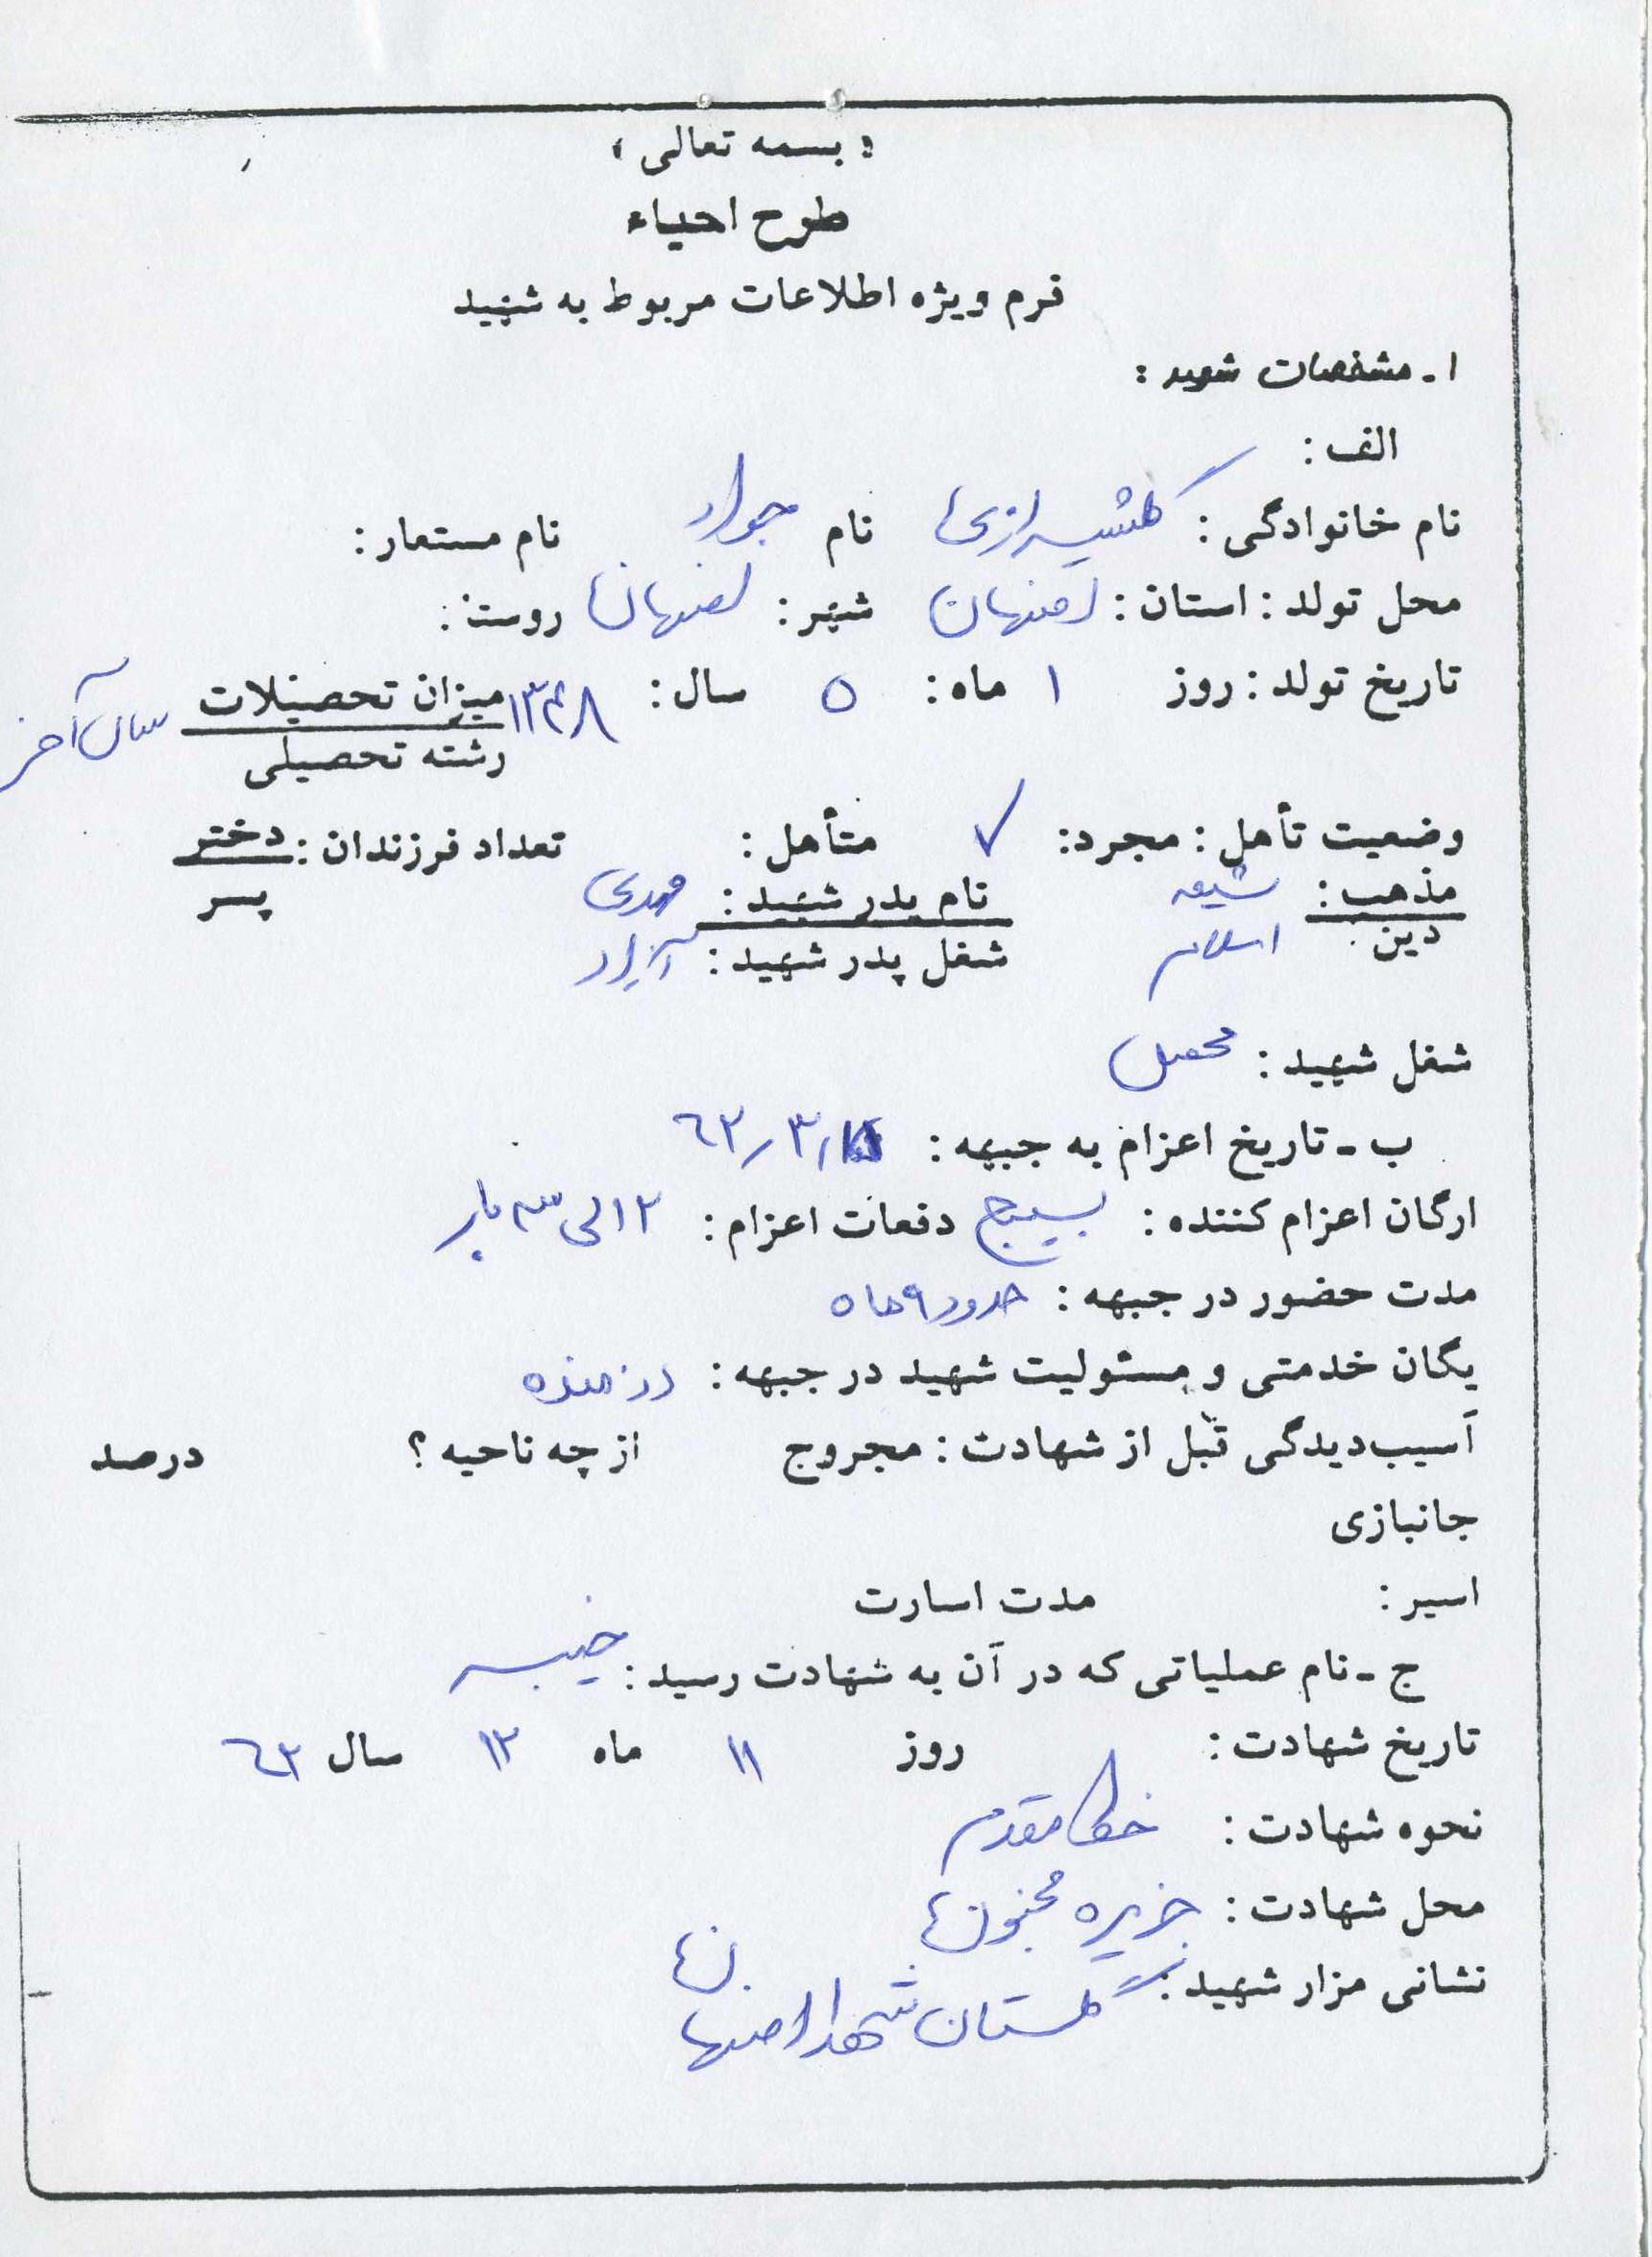 « بسمه تعالی »
طرح احیاء
فرم ویژه اطلاعات مربوط به شهید
۱ـ مشخصات شهید :
الف :
نام خانوادگی : گلشیرازی نام جواد نام مستعار :
محل تولد : استان : اصفهان شهر : اصفهان روستا :
تاریخ تولد : روز ۱ ماه : ۵ سال : ۱۳۴۸ میزان تحصیلات سال آخر
رشته تحصیلی
وضعیت تأهل : مجرد : ✓ متأهل : تعداد فرزندان : دختر
پسر
مذهب : شیعه نام پدر شهید : مهدی
دین : اسلام شغل پدر شهید : آزاد
شغل شهید : محصل
ب ـ تاریخ اعزام به جبهه : ۶۳/۳/
ارگان اعزام کننده : بسیج دفعات اعزام : ۲ الی سه بار
مدت حضور در جبهه : حدود ۹ ماه
یگان خدمتی و مسئولیت شهید در جبهه : رزمنده
آسیب‌دیدگی قبل از شهادت : مجروح از چه ناحیه ؟ درصد
جانبازی
اسیر : مدت اسارت
ج ـ نام عملیاتی که در آن به شهادت رسید : خیبر
تاریخ شهادت : روز ۱۱ ماه ۱۲ سال ۶۳
نحوه شهادت : خط مقدم
محل شهادت : جزیره مجنون
نشانی مزار شهید : گلستان شهدا اصفهان